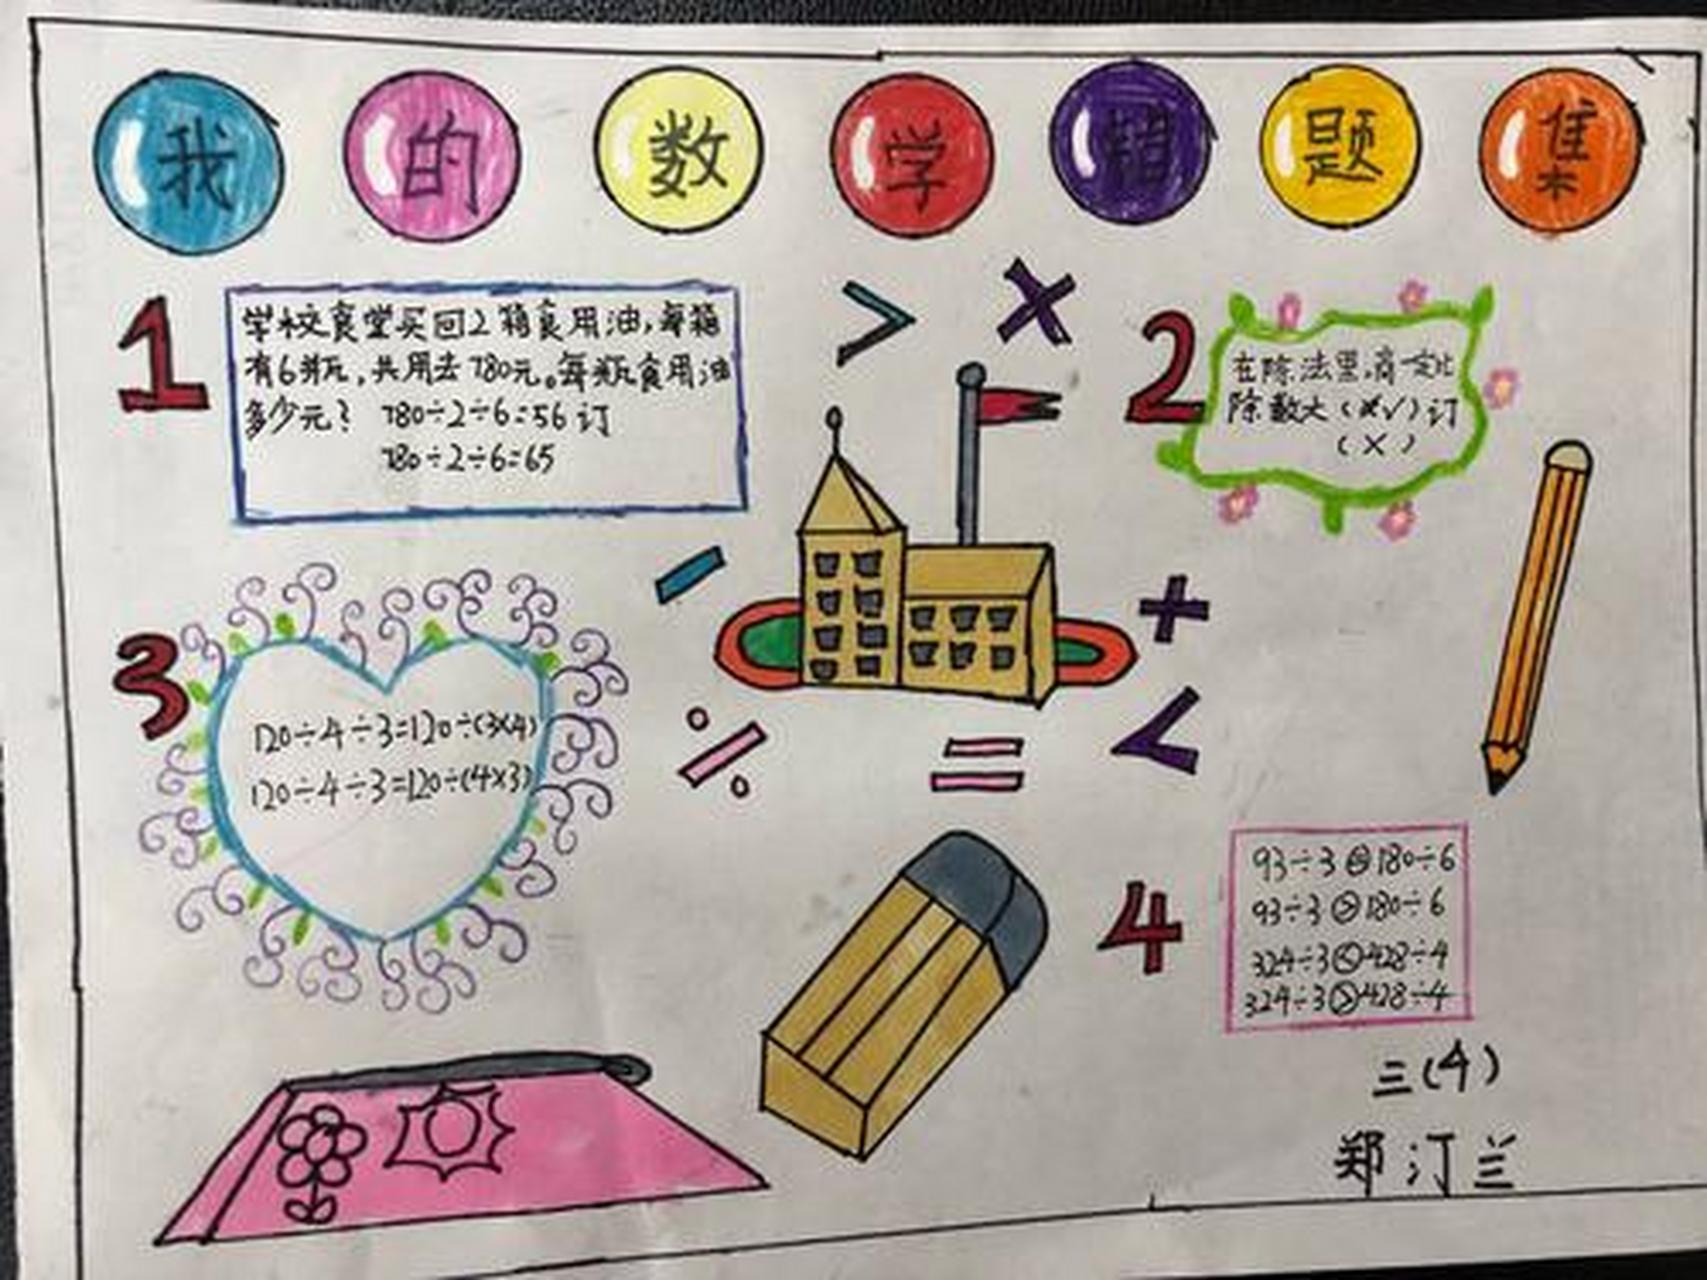 我的数学错题集
1
学校食堂买回2箱食用油,每箱
有6瓶,共用去780元。每瓶食用油
多少元? 780÷2÷6=56 订
780÷2÷6=65
> ×
2
在除法里,商一定比
除数大(×√)订
(×)
-
+
3
120÷4÷3=120÷(3×4)
120÷4÷3=120÷(4×3)
÷ = <
4
93÷3=180÷6
93÷3>180÷6
324÷3<428÷4
324÷3>428÷4
三(4)
郑汀兰